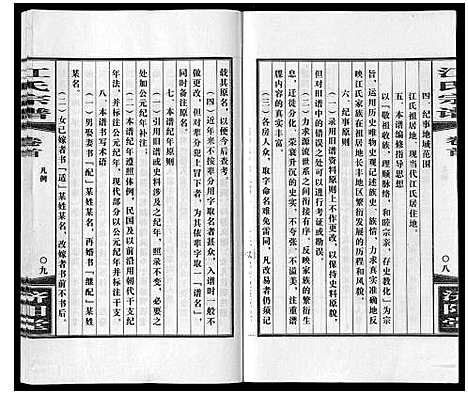 江氏宗谱
卷首
〇八
济阳堂
四、纪事地域范围
江氏祖居地、现当代江氏居住地。
五、本谱编修指导思想
以“敬祖收族、理顺脉络、和睦宗亲、存史教化”为宗
旨，运用历史唯物史观记述族史、族情，力求真实准确反
映江氏家族在祖居地长丰地区繁衍发展的历程和风貌。
六、纪事原则
（一）录用旧谱资料原则上保持原貌，以保持史料原貌，
但对旧谱中的误记予以考证或勘误。
（二）力求源流世系之间衔接有序，反映家族的繁衍生
息、迁徙分化、荣衰升沉的史实，不夸张、不溢美，注重谱
牒内容的真实丰富
（三）各房人众，取字命名难免雷同，凡改易者仍予刊
江氏宗谱
卷首
凡例
〇九
济阳堂
载其原名，以便今后查考。
（四）纪年未按辈分用字取名者甚众，入谱时，一般不
做更改，但对辈分犯上冒下者，为其依辈字取一“谱名”，
同时备注原名。
七、本谱纪年原则
（一）本谱纪年遵照体例，民国及以前沿用朝代干支纪
年法，并标注公元纪年，现代部分以公元纪年并标注干支。
（二）引用旧谱或史料涉及之纪年，照录不变，必要之
处加公元纪年补注；
八、本谱书写术语
（一）男娶妻书“配”某姓某名，再婚书“继配”某姓
某名。
（二）女已嫁者书“适”某姓某名，改嫁者书前不书后。